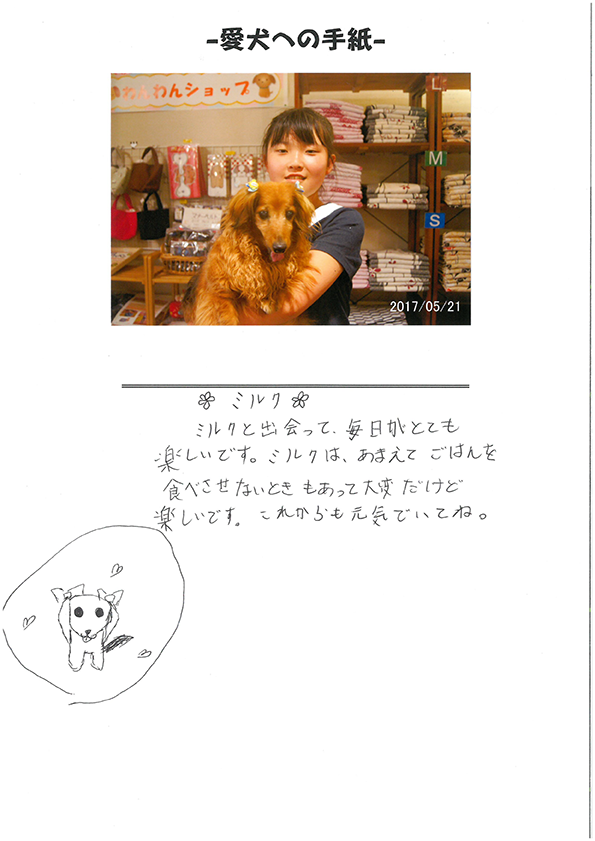 -愛犬への手紙-
わんわんショップ
L
M
S
2017/05/21
ミルク
ミルクと出会って、毎日がとても
楽しいです。ミルクは、あまえて ごはんを
食べさせないときもあって大変だけど
楽しいです。これからも元気でいてね。